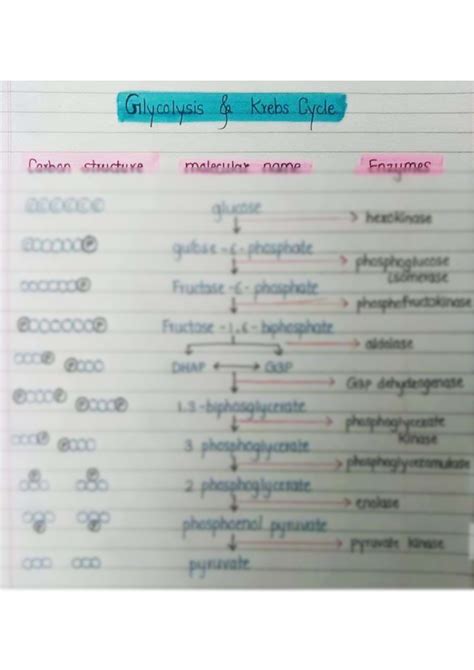 Glycolysis & Krebs Cycle
Carbon structure molecular name Enzymes
glucose
hexokinase
-6-phosphate
phosphoglucose
isomerase
Fructose-6-phosphate
phosphofructokinase
Fructose-1,6-biphosphate
aldolase
DHAP G3P
G3P dehydogenase
1.3-biphosglycerate
phosphoglycerate
kinase
3 phosphoglycerate
2 phosphoglycerate
enolase
phosphoenol pyruvate
pyruvate kinase
pyruvate